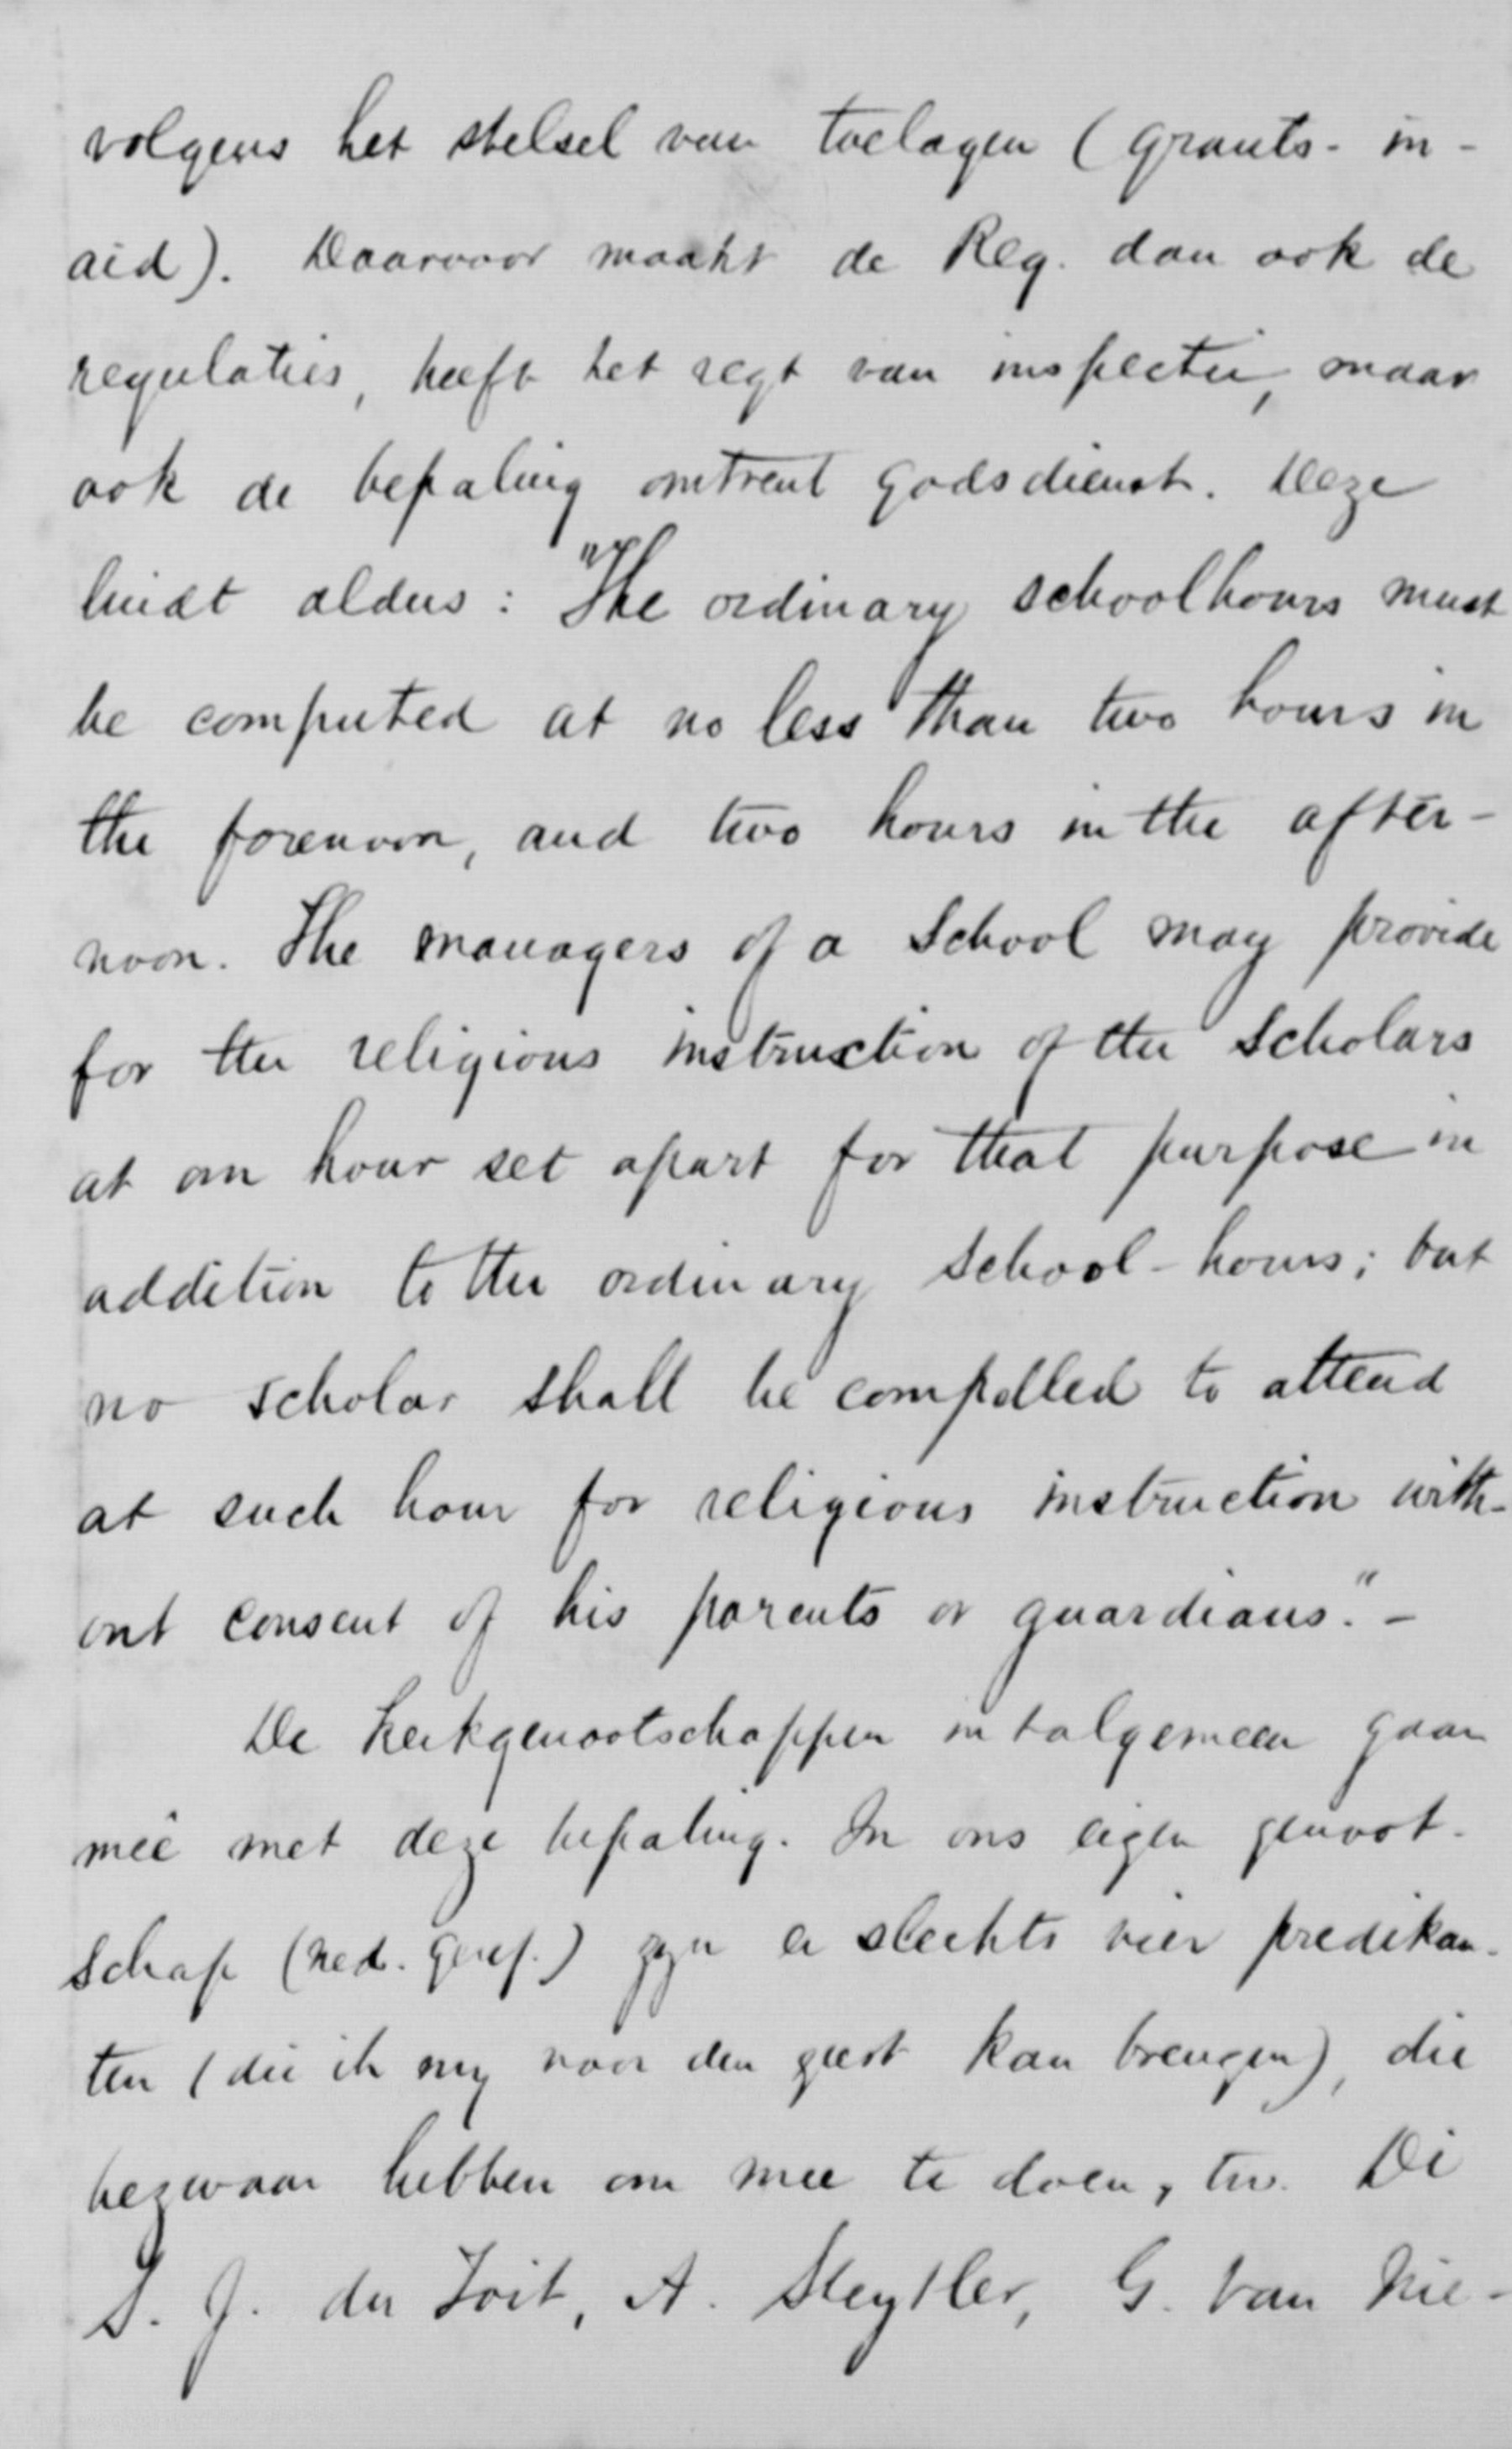 volgens het stelsel van toelagen (grants-in-
aid). Daarvoor maakt de Reg. dan ook de
regulaties, heeft het regt van inspectie, maar
ook de bepaling omtrent godsdienst. Deze
luidt aldus: "The ordinary schoolhours must
be computed at no less than two hours in
the forenoon, and two hours in the after-
noon. The managers of a School may provide
for the religious instruction of the Scholars
at an hour set apart for that purpose in
addition to the ordinary School-hours; but
no scholar shall be compelled to attend
at such hour for religious instruction with-
out consent of his parents or guardians." -
De kerkgenootschappen in 't algemeen gaan
meê met deze bepaling. In ons eigen genoot-
schap (ned. geref.) zyn er slechts vier predikan-
ten (die ik my voor den geest kan brengen), die
bezwaar hebben om mee te doen, tw. Di
S. J. du Toit, A. Steytler, G. van Nie-